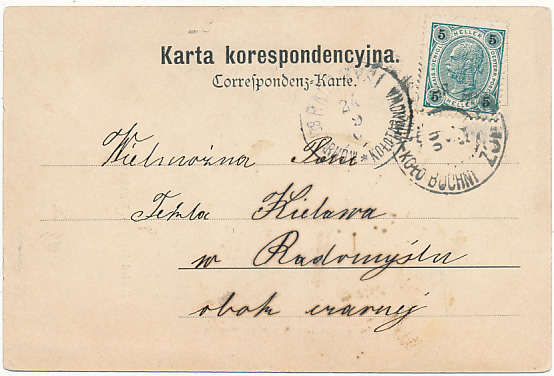 Karta korespondencyjna.
Correspondenz-Karte.
5 HELLER 5
5 HELLER 5
KOŁO BOCHNI
24 9
Wielmożna Pani
Tekla Kielawa
w Radomyślu
obok czarnej